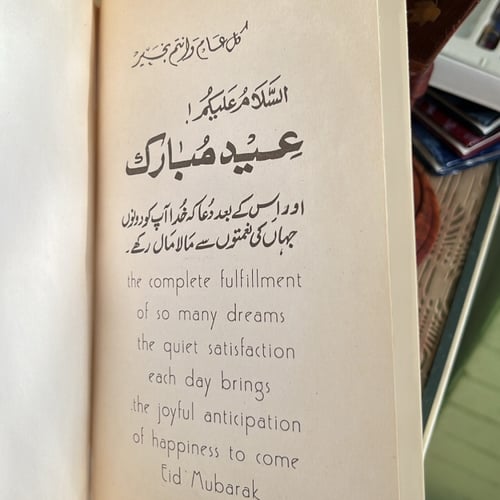 كل عام وانتم بخير
السَّلَامُ عَلَيْكُمْ!
عِيْد مُبَارَك
اور اِس کے بعد دُعا کہ خُدا آپ کو دونوں
جہاں کی نعمتوں سے مالا مال رکھے۔
the complete fulfillment
of so many dreams
the quiet satisfaction
each day brings
the joyful anticipation
of happiness to come
Eid Mubarak